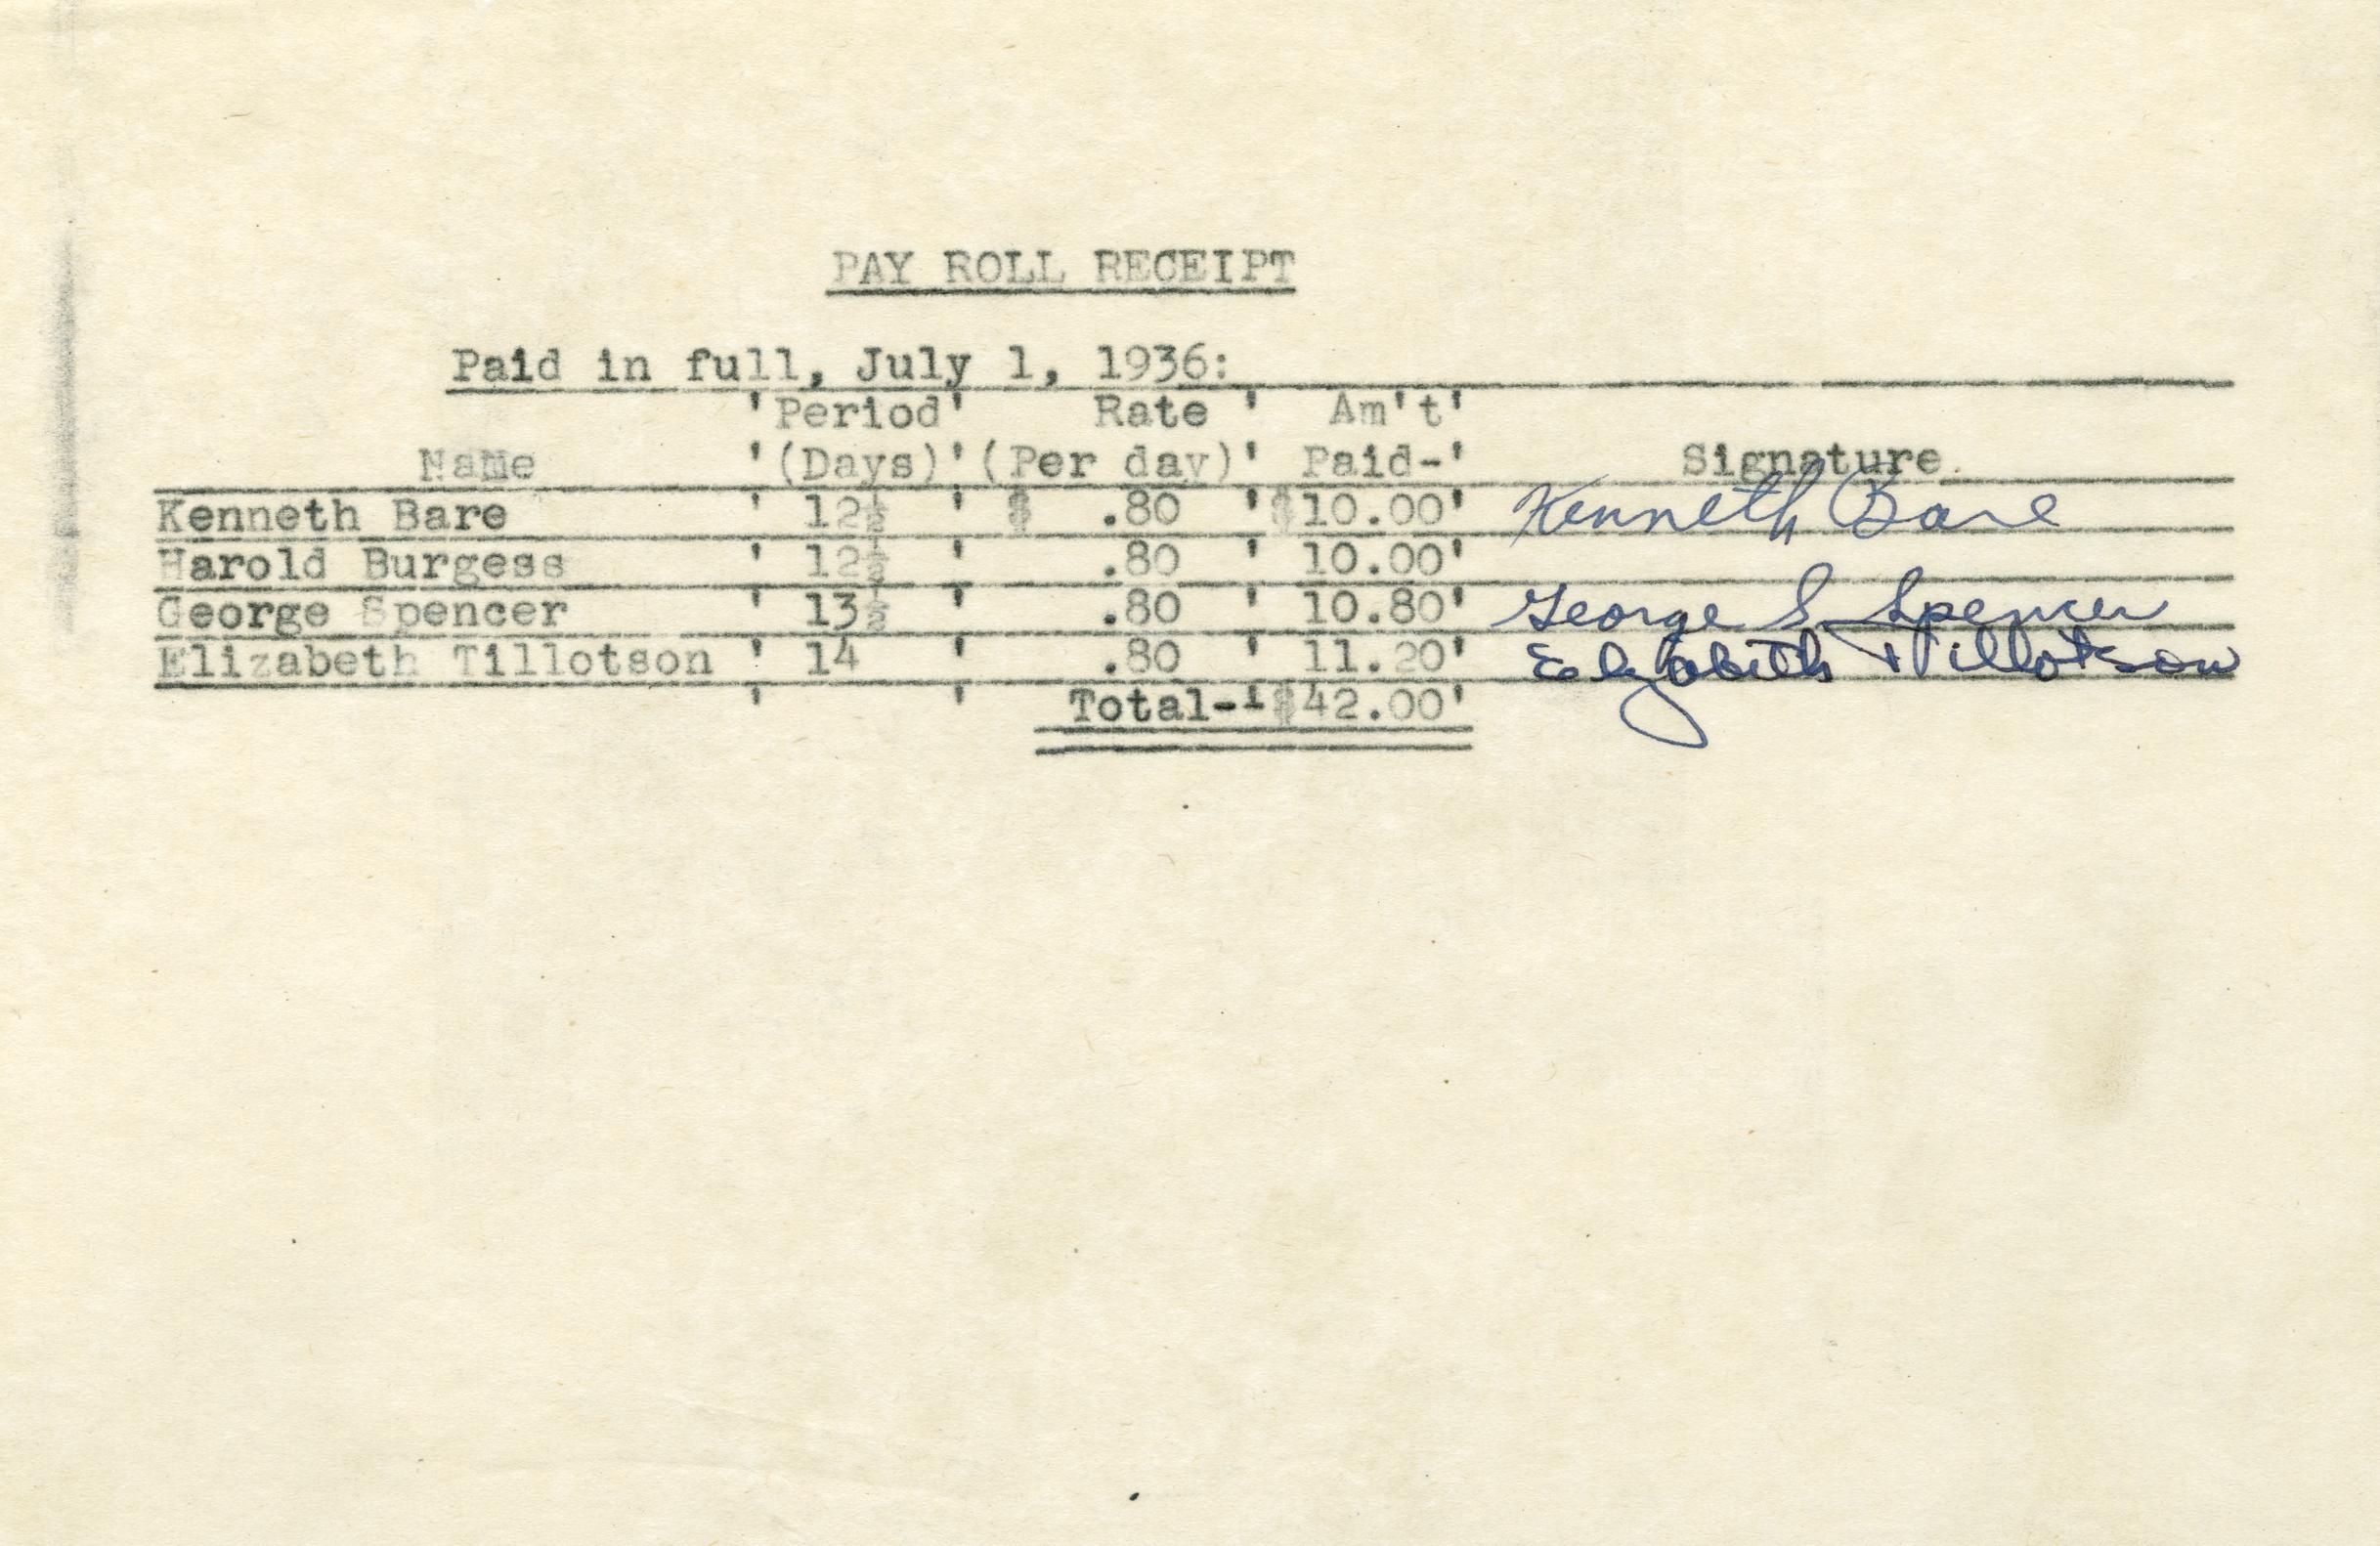 PAY ROLL RECEIPT
Paid in full, July 1, 1936:
'Period' Rate ' Am't'
Name '(Days)'(Per day)' Paid-' Signature.
Kenneth Bare ' 12½ ' $ .80 '$10.00' Kenneth Bare
Harold Burgess ' 12½ ' .80 ' 10.00'
George Spencer ' 13½ ' .80 ' 10.80' George S. Spencer
Elizabeth Tillotson ' 14 ' .80 ' 11.20' Elizabeth Tillotson
' ' Total-'$42.00'